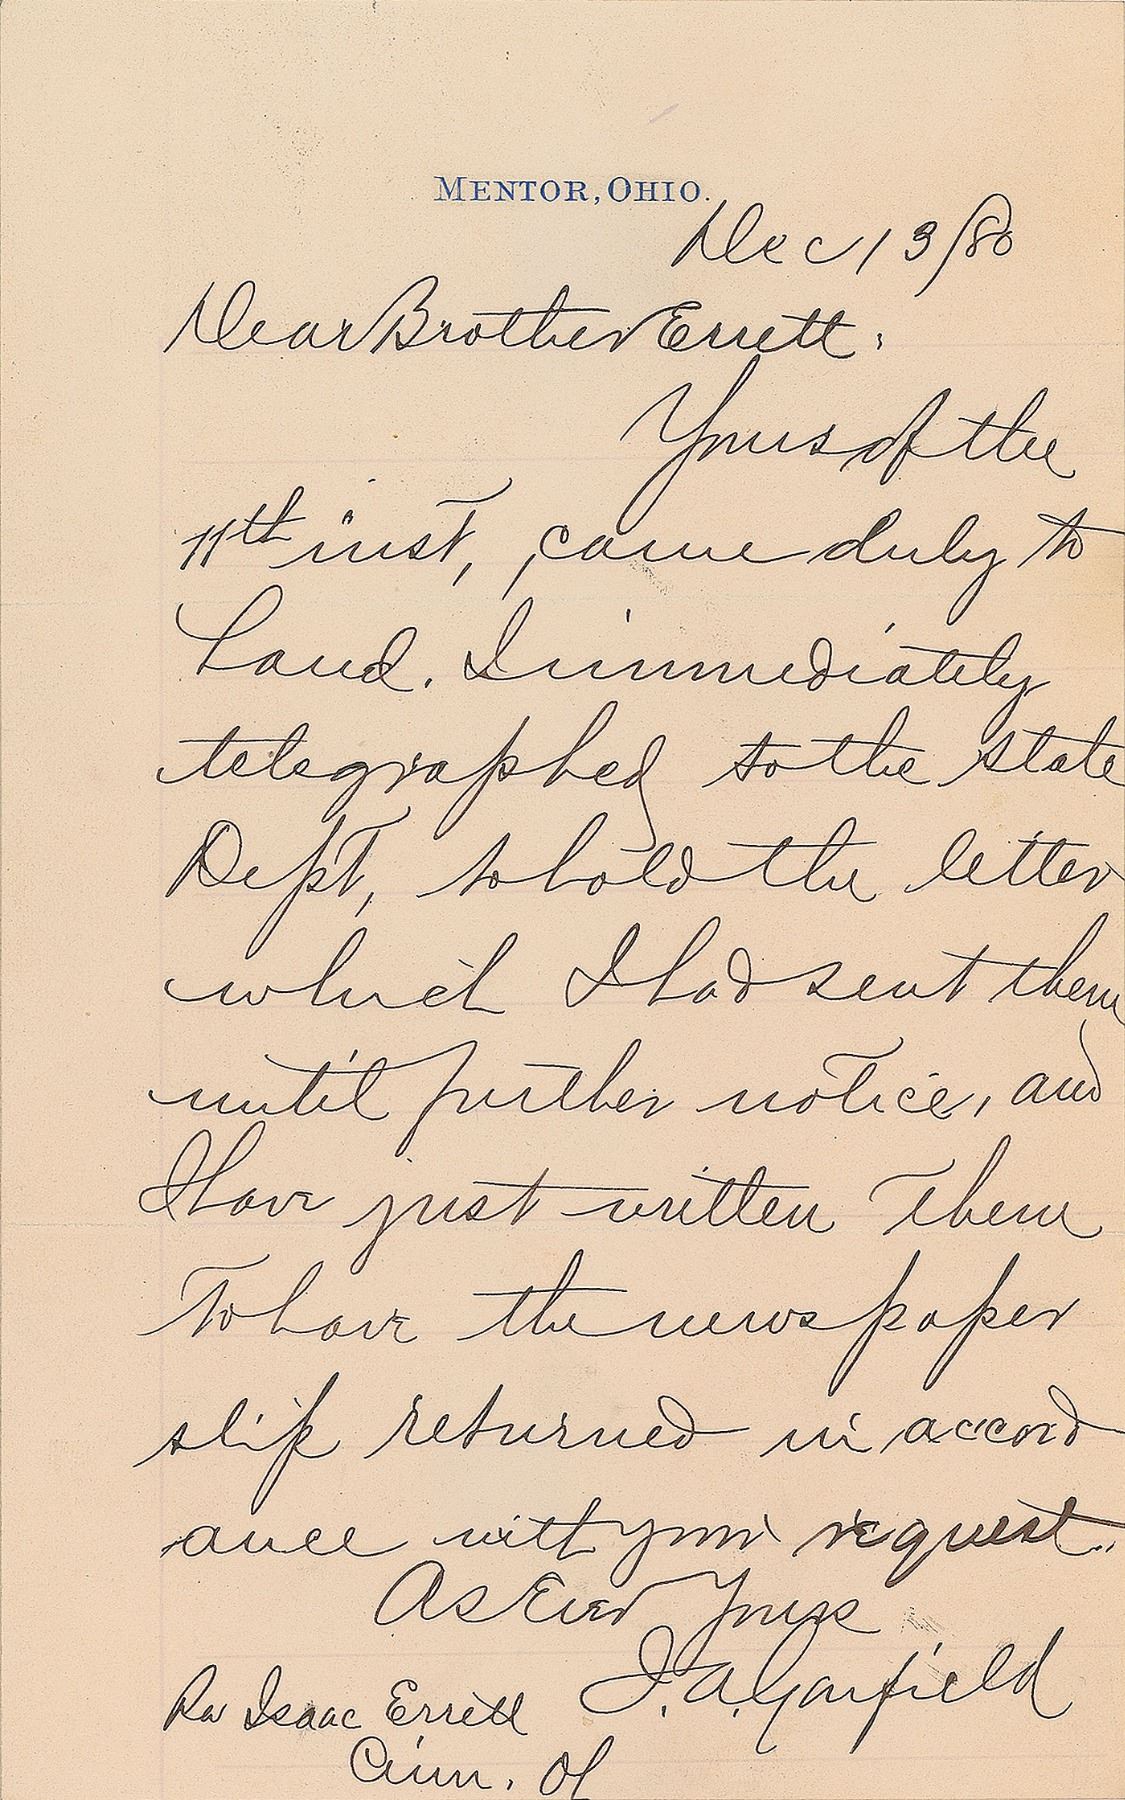 MENTOR, OHIO.
Dec 13/80
Dear Brother Errett:
Yours of the
11th inst, came duly to
hand. I immediately
telegraphed to the State
Dept, to hold the letter
which I had sent them
until further notice, and
I have just written them
to have the newspaper
slip returned in accord
ance with your request.
As Ever Yours
J. A. Garfield
Rev Isaac Errett
Cinn. O